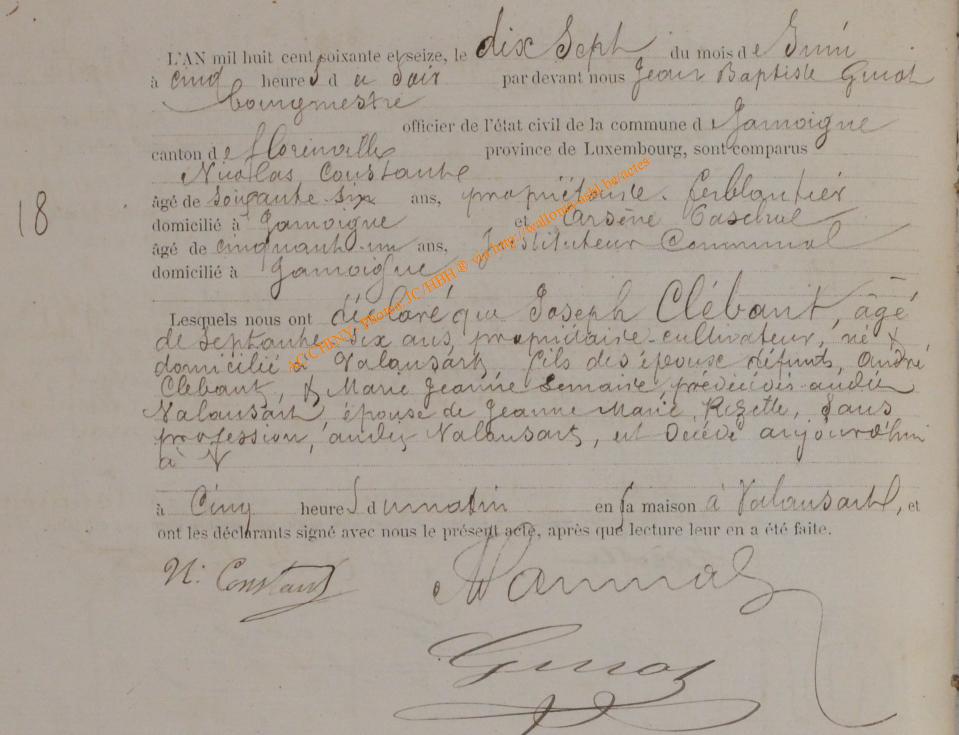 L'AN mil huit cent soixante et seize, le dix Sept du mois de Juin
à cinq heures du Soir par devant nous Jean Baptiste Guiot
bourgmestre
officier de l'état civil de la commune de Jamoigne
canton de Florenville province de Luxembourg, sont comparus
Nicolas Constant
âgé de soixante six ans, propriétaire ferblantier
domicilié à Jamoigne et Arsène
18
âgé de cinquante-un ans, Instituteur Communal
domicilié à Jamoigne
AC CHINY- Photos JC/HBH ® via http://wallonia-asbl.be/actes
Lesquels nous ont déclaré que Joseph Clébant, âgé
de septante six ans, propriétaire-cultivateur, né &
domicilié à Valansart, fils des époux défunts, André
Clébant, & Marie Jeanne Lemaire, prédécédés audit
Valansart, époux de Jeanne Marie Rozette, Sans
profession, audit Valansart, est Décédé aujourd'hui
à
à Cinq heures du matin en sa maison à Valansart, et
ont les déclarants signé avec nous le présent acte, après que lecture leur en a été faite.
N. Constant
Guiot